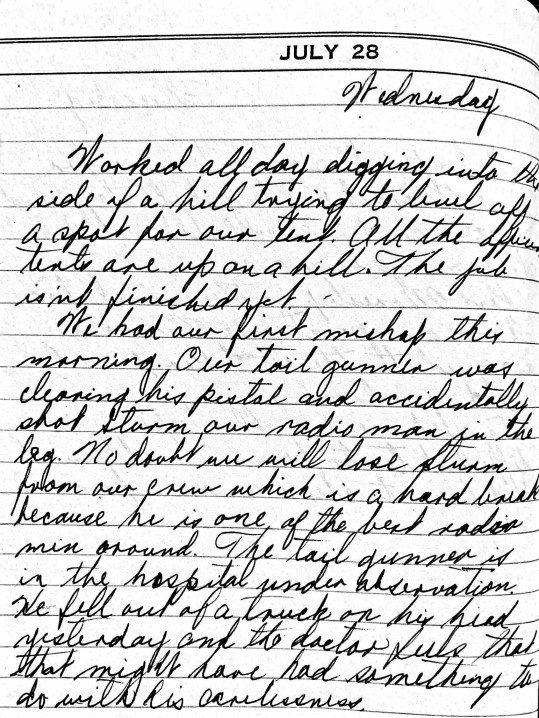 JULY 28
Wednesday
Worked all day digging into the
side of a hill trying to level off
a spot for our tent. All the officers
tents are up on a hill. The job
isn't finished yet.
We had our first mishap this
morning. Our tail gunner was
cleaning his pistol and accidentally
shot Sturm our radio man in the
leg. No doubt we will lose Sturm
from our crew which is a hard break
because he is one of the best radio
men around. The tail gunner is
in the hospital under observation.
He fell out of a truck on his head
yesterday and the doctor feels that
that might have had something to
do with his carelessness.